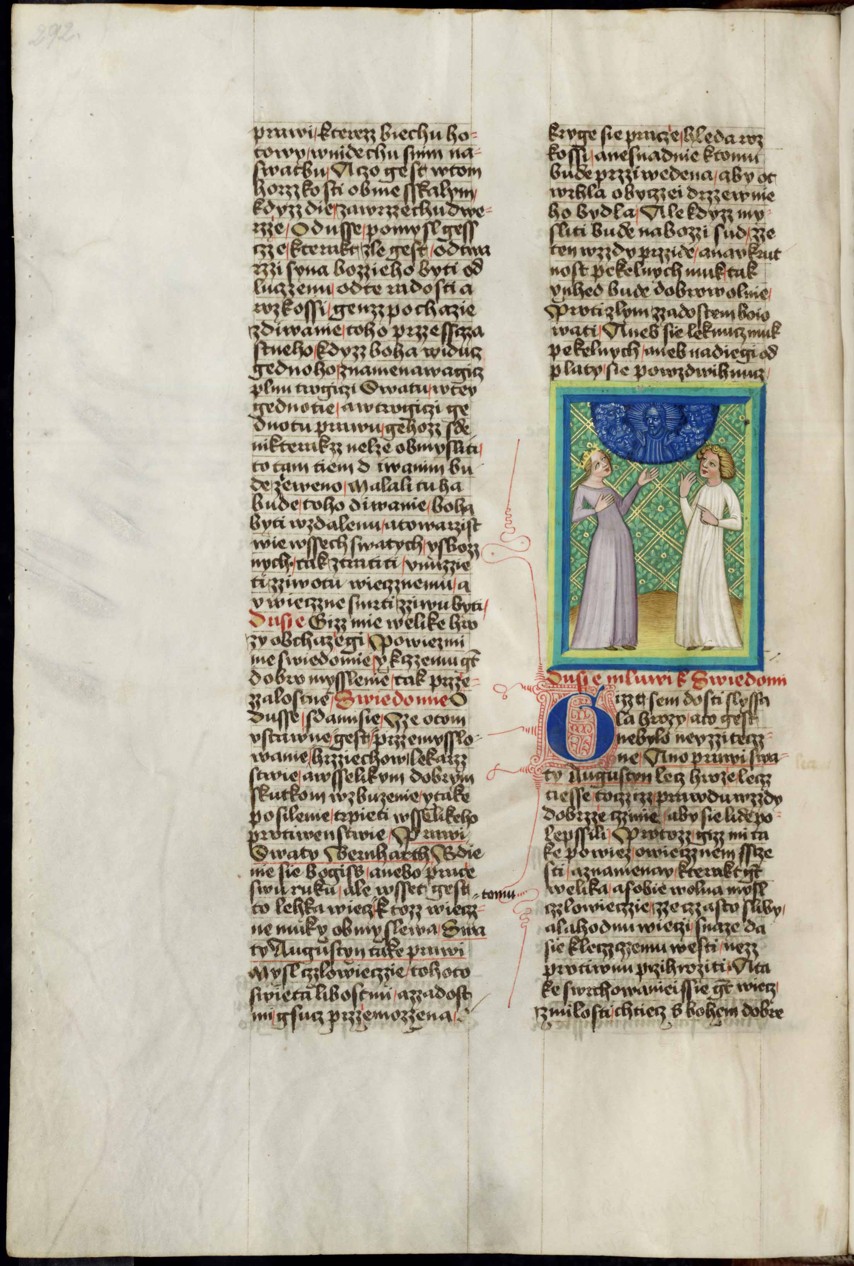 292.
prawi kterzz biechu ho=
towy wnidechu snim na=
swatbu Aczo gest wtom
horzkosti obmesskalym
kdyzz die zawrzechu dwe=
rze O dusse pomysl gess
cze kterakt zle gest odtwa
rzi syna bozzieho byti od
luczenu odte radosti a
rozkossi genzz pochazie
zdiwanie toho przessczza
stneho kdyzz boha widucz
gednoho znamenawagicz
plnu trogiczi Swatu wtey
gednotie awtrogiczi ge
dnotu prawu gehozz sde
nikterakzz nelze obmysliti
to tam tiem d iwanim bu
de zeweno Malali tu ha
bude toho diwanie boha
byti wzdalenu atowarzist
wie wssech swatych vsbozz
nych tak ztratiti vmrzie
ti zziwotu wiecznemu a
v wieczne smrti zziwu byti
dusie Gizz mie welike hro
zy obchazegi Powiezmi
me swiedomie y kczemu gt
dobro myssleme tak prze=
zzalostne Swiedomie O
dusse sdamsie zze otom
vstawne gest przemysslo=
wanie hrziechow lekarz
stwie awsselikym dobrym
skutkom wzbuzenie ytake
posilenie trpieti wsselikeho
protiwenstwie Prawi
Swaty Bernhart Zdie
me sie bogiss anebo prace
swu ruku ale wsset gest
to lehka wiecz ktozz wiecz=
ne muky obmysslewa Swa
ty Augustyn take prawi
Mysl czlowieczie tohoto
swieta libostmi azzadost
mi gsucz przemozzena
-temu
kryge sie pracze hleda roz
kossi anesnadnie ktomu
bude przziwedena aby ot
wrhla obyczei drzewnie
ho bydla Ale kdyzz my=
sliti bude nabozzi sud zze
ten wzzdy przzide anaukrut
nost pekelnych muk tak
yhned bude dobrowolnie
Proti zlym zzadostem boio
wati Aneb sie leknucz muk
pekelnych aneb nadiegi od
platy sie powzdwihnucz
dusie mluwi k Swiedomi
Gizz sem dosti slyssa
la hrozy ato gest
nebylo neyzzitecz=
ne Ano prawi swa=
ty Augustyn lecz hroze lecz
tiesse toczzcz prawdu wzzdy
dobrzze czznie aby sie lide po=
lepssili Protozz gizz mi ta
ke powiez owiecznem sscze
sti aznamenay kterakt gt
welika asobie wolna mysl
czlowieczie zze czasto sliby
alahodnu wieczi snaze da
sie kleczczemu westi nezz
protiwnu przihroziti Ata
ke swrchowaneissie gt wiecz
zmilosti chtiecz s bohem dobre